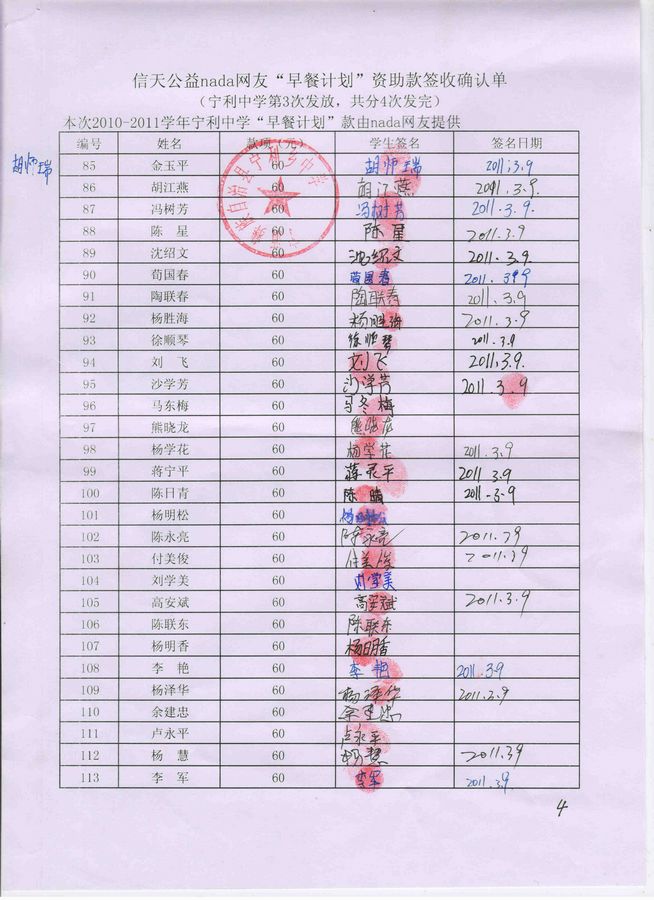 信天公益nada网友“早餐计划”资助款签收确认单
（宁利中学第3次发放，共分4次发完）
本次2010-2011学年宁利中学“早餐计划”款由nada网友提供
编号 姓名 款项（元） 学生签名 签名日期
胡师瑞 85 金玉平 60 胡师瑞 2011.3.9
86 胡江燕 60 胡江燕 2011.3.9.
87 冯树芳 60 冯树芳 2011.3.9.
88 陈 星 60 陈星 2011.3.9
89 沈绍文 60 沈绍文 2011.3.9.
90 荀国春 60 荀国春 2011.3.9
91 陶联春 60 陶联春 2011.3.9
92 杨胜海 60 杨胜海 2011.3.9.
93 徐顺琴 60 徐顺琴 2011.3.9.
94 刘 飞 60 刘飞 2011.3.9.
95 沙学芳 60 沙学芳 2011.3.9
96 马东梅 60 马冬梅
97 熊晓龙 60 熊晓龙
98 杨学花 60 杨学花 2011.3.9
99 蒋宁平 60 蒋灵平 2011.3.9
100 陈日青 60 陈晴 2011.3.9
101 杨明松 60
102 陈永亮 60 陈永亮 2011.3.9
103 付美俊 60 付美俊 2011.3.9
104 刘学美 60 刘学美
105 高安斌 60 高安斌 2011.3.9
106 陈联东 60 陈联东
107 杨明香 60 杨明香
108 李 艳 60 李艳 2011.3.9
109 杨泽华 60 杨泽华 2011.3.9
110 余建忠 60 余建忠
111 卢永平 60 卢永平
112 杨 慧 60 杨慧 2011.3.9
113 李 军 60 李军 2011.3.9.
4